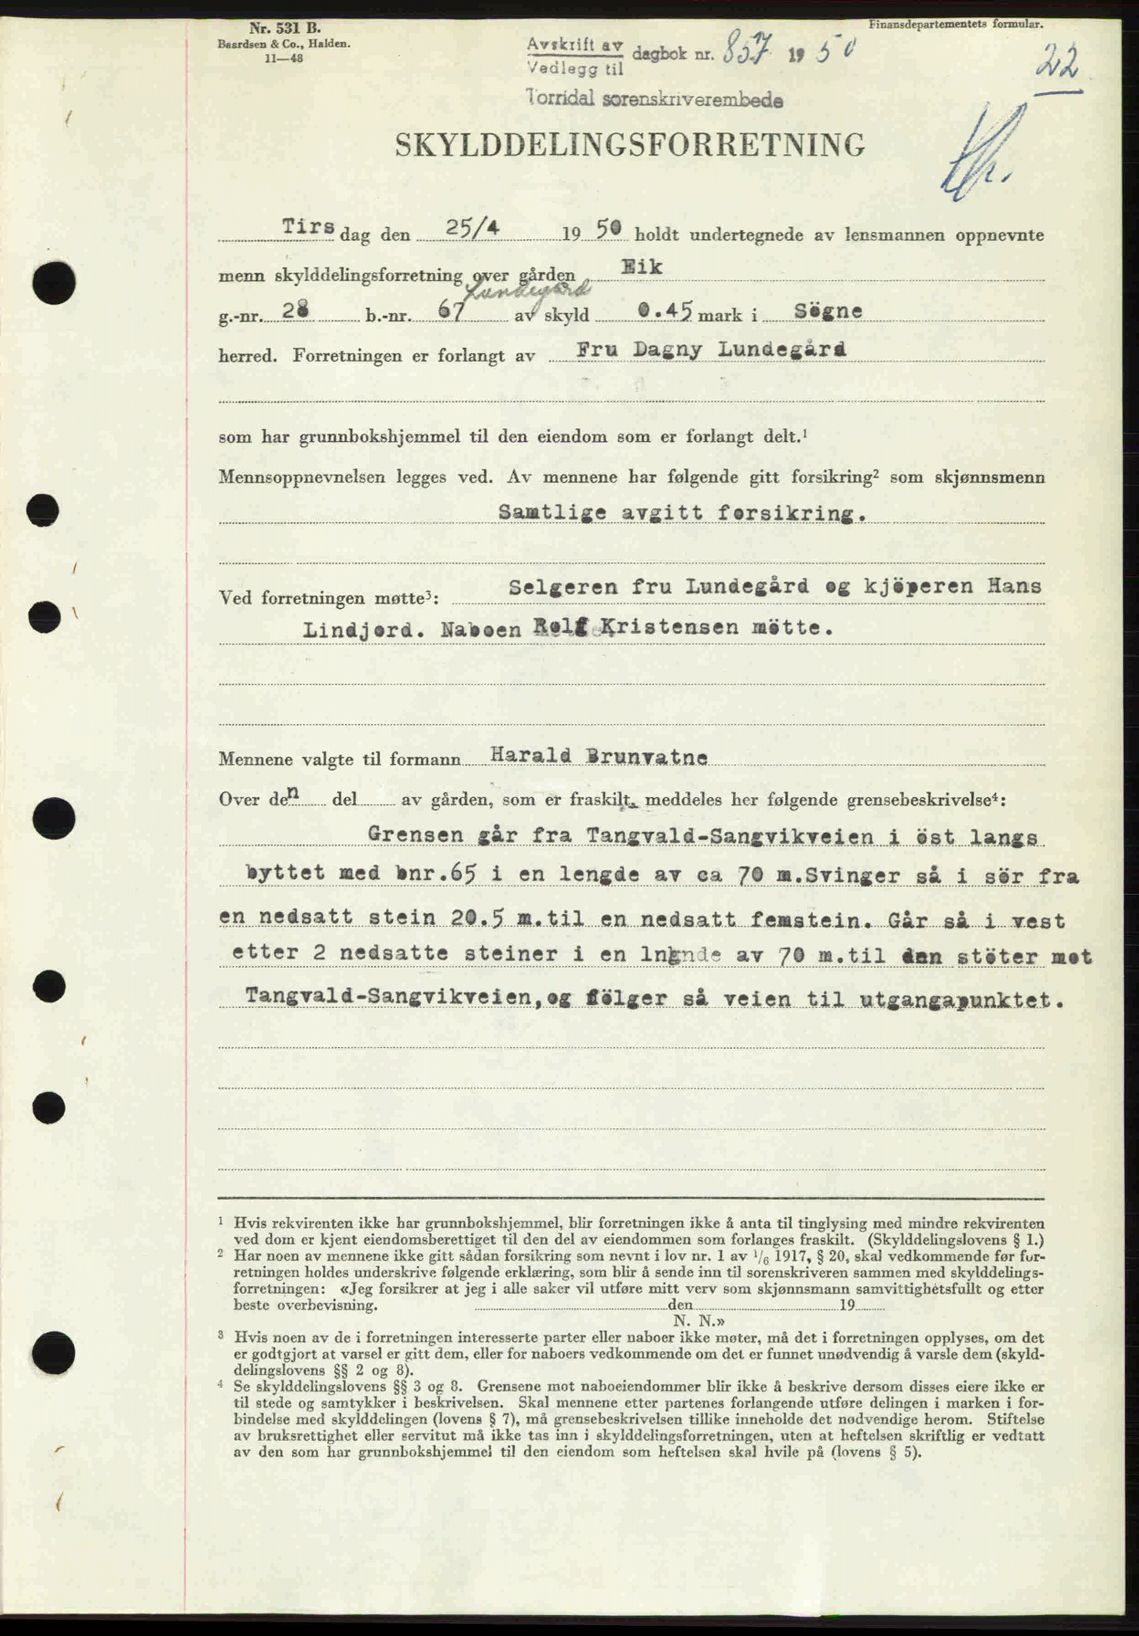 Nr. 531 B.
Baardsen & Co., Halden.
11—48
Finansdepartementets formular.
Avskrift av
Vedlegg til
dagbok nr. 857 1950
Torridal sorenskriverembede
22
SKYLDDELINGSFORRETNING
Tirs dag den 25/4 1950 holdt undertegnede av lensmannen oppnevnte
menn skylddelingsforretning over gården Eik
Lundegård
g.-nr. 28 b.-nr. 67 av skyld 0.45 mark i Sögne
herred. Forretningen er forlangt av Fru Dagny Lundegård
som har grunnbokshjemmel til den eiendom som er forlangt delt.¹
Mennsoppnevnelsen legges ved. Av mennene har følgende gitt forsikring² som skjønnsmenn
Samtlige avgitt forsikring.
Ved forretningen møtte³: Selgeren fru Lundegård og kjöperen Hans
Lindjord. Naboen Rolf Kristensen mötte.
Mennene valgte til formann Harald Brunvatne
Over den del av gården, som er fraskilt, meddeles her følgende grensebeskrivelse⁴:
Grensen går fra Tangvald-Sangvikveien i öst langs
byttet med bnr.65 i en lengde av ca 70 m.Svinger så i sör fra
en nedsatt stein 20.5 m.til en nedsatt femstein. Går så i vest
etter 2 nedsatte steiner i en lngnde av 70 m.til den stöter mot
Tangvald-Sangvikveien,og fölger så veien til utgangapunktet.
¹ Hvis rekvirenten ikke har grunnbokshjemmel, blir forretningen ikke å anta til tinglysing med mindre rekvirenten
ved dom er kjent eiendomsberettiget til den del av eiendommen som forlanges fraskilt. (Skylddelingslovens § 1.)
² Har noen av mennene ikke gitt sådan forsikring som nevnt i lov nr. 1 av 1/6 1917, § 20, skal vedkommende før for-
retningen holdes underskrive følgende erklæring, som blir å sende inn til sorenskriveren sammen med skylddelings-
forretningen: «Jeg forsikrer at jeg i alle saker vil utføre mitt verv som skjønnsmann samvittighetsfullt og etter
beste overbevisning. den 19
N. N.»
³ Hvis noen av de i forretningen interesserte parter eller naboer ikke møter, må det i forretningen opplyses, om det
er godtgjort at varsel er gitt dem, eller for naboers vedkommende om det er funnet unødvendig å varsle dem (skyld-
delingslovens §§ 2 og 8).
⁴ Se skylddelingslovens §§ 3 og 8. Grensene mot naboeiendommer blir ikke å beskrive dersom disses eiere ikke er
til stede og samtykker i beskrivelsen. Skal mennene etter partenes forlangende utføre delingen i marken i for-
bindelse med skylddelingen (lovens § 7), må grensebeskrivelsen tillike inneholde det nødvendige herom. Stiftelse
av bruksrettighet eller servitut må ikke tas inn i skylddelingsforretningen, uten at heftelsen skriftlig er vedtatt
av den som har grunnbokshjemmel til den eiendom som heftelsen skal hvile på (lovens § 5).